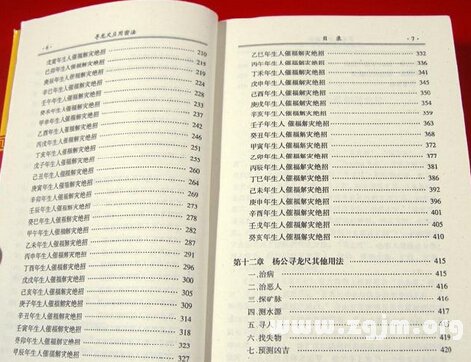 · 6 ·
戊寅年生人催福解灾绝招 210
己卯年生人催福解灾绝招
庚辰年生人催福解灾绝招 219
辛巳年生人催福解灾绝招 224
壬午年生人催福解灾绝招 228
癸未年生人催福解灾绝招 233
甲申年生人催福解灾绝招
乙酉年生人催福解灾绝招
丙戌年生人催福解灾绝招
丁亥年生人催福解灾绝招 250
戊子年生人催福解灾绝招 255
己丑年生人催福解灾绝招 260
庚寅年生人催福解灾绝招
辛卯年生人催福解灾绝招
壬辰年生人催福解灾绝招 273
癸巳年生人催福解灾绝招 278
甲午年生人催福解灾绝招 282
乙未年生人催福解灾绝招 287
丙申年生人催福解灾绝招 291
丁酉年生人催福解灾绝招 296
戊戌年生人催福解灾绝招 300
己亥年生人催福解灾绝招 305
庚子年生人催福解灾绝招 309
辛丑年生人催福解灾绝招 314
壬寅年生人催福解灾绝招 318
癸卯年生人催福解灾绝招 323
甲辰年生人催福解灾绝招 327
目 录 · 7 ·
乙巳年生人催福解灾绝招 332
丙午年生人催福解灾绝招 336
丁未年生人催福解灾绝招 341
戊申年生人催福解灾绝招 345
己酉年生人催福解灾绝招 350
庚戌年生人催福解灾绝招 354
辛亥年生人催福解灾绝招 359
壬子年生人催福解灾绝招
癸丑年生人催福解灾绝招 368
甲寅年生人催福解灾绝招 373
乙卯年生人催福解灾绝招 377
丙辰年生人催福解灾绝招 381
丁巳年生人催福解灾绝招 386
己未年生人催福解灾绝招
庚申年生人催福解灾绝招 396
辛酉年生人催福解灾绝招 401
壬戌年生人催福解灾绝招 405
癸亥年生人催福解灾绝招 410
第十二章 杨公寻龙尺其他用法 415
一、治病 415
二、治恶人 416
三、探矿脉 416
四、测水源
五、寻人
六、找失物
七、预测凶吉 420
www.zgjm.org